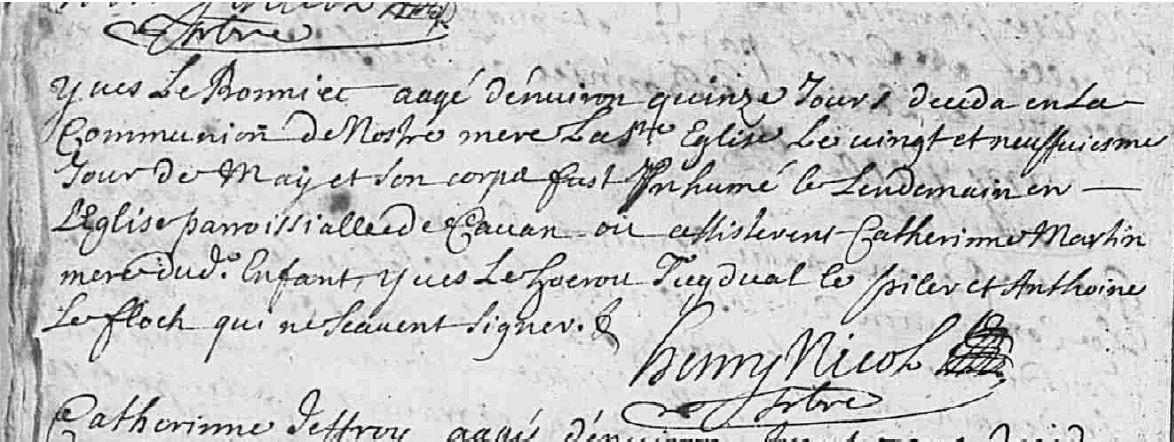 ptbre
Yves Le Bonniec aagé dénuiron quinze Jours deceda en La
Communion de Nostre mere La Ste Eglise Le vingt et neuffuiesme
Jour de May et son corps fust Inhumé le Lendemain en
LEglise parroissialle de Cauan ou assisterent Catherinne Martin
mere dudt. Enfant, yues Le hoerou Tugdual le piler et Anthoine
Le floch qui ne scauent signer. &
henry Nicol
ptbre
Catherinne Jeffroy aagée dénuiron